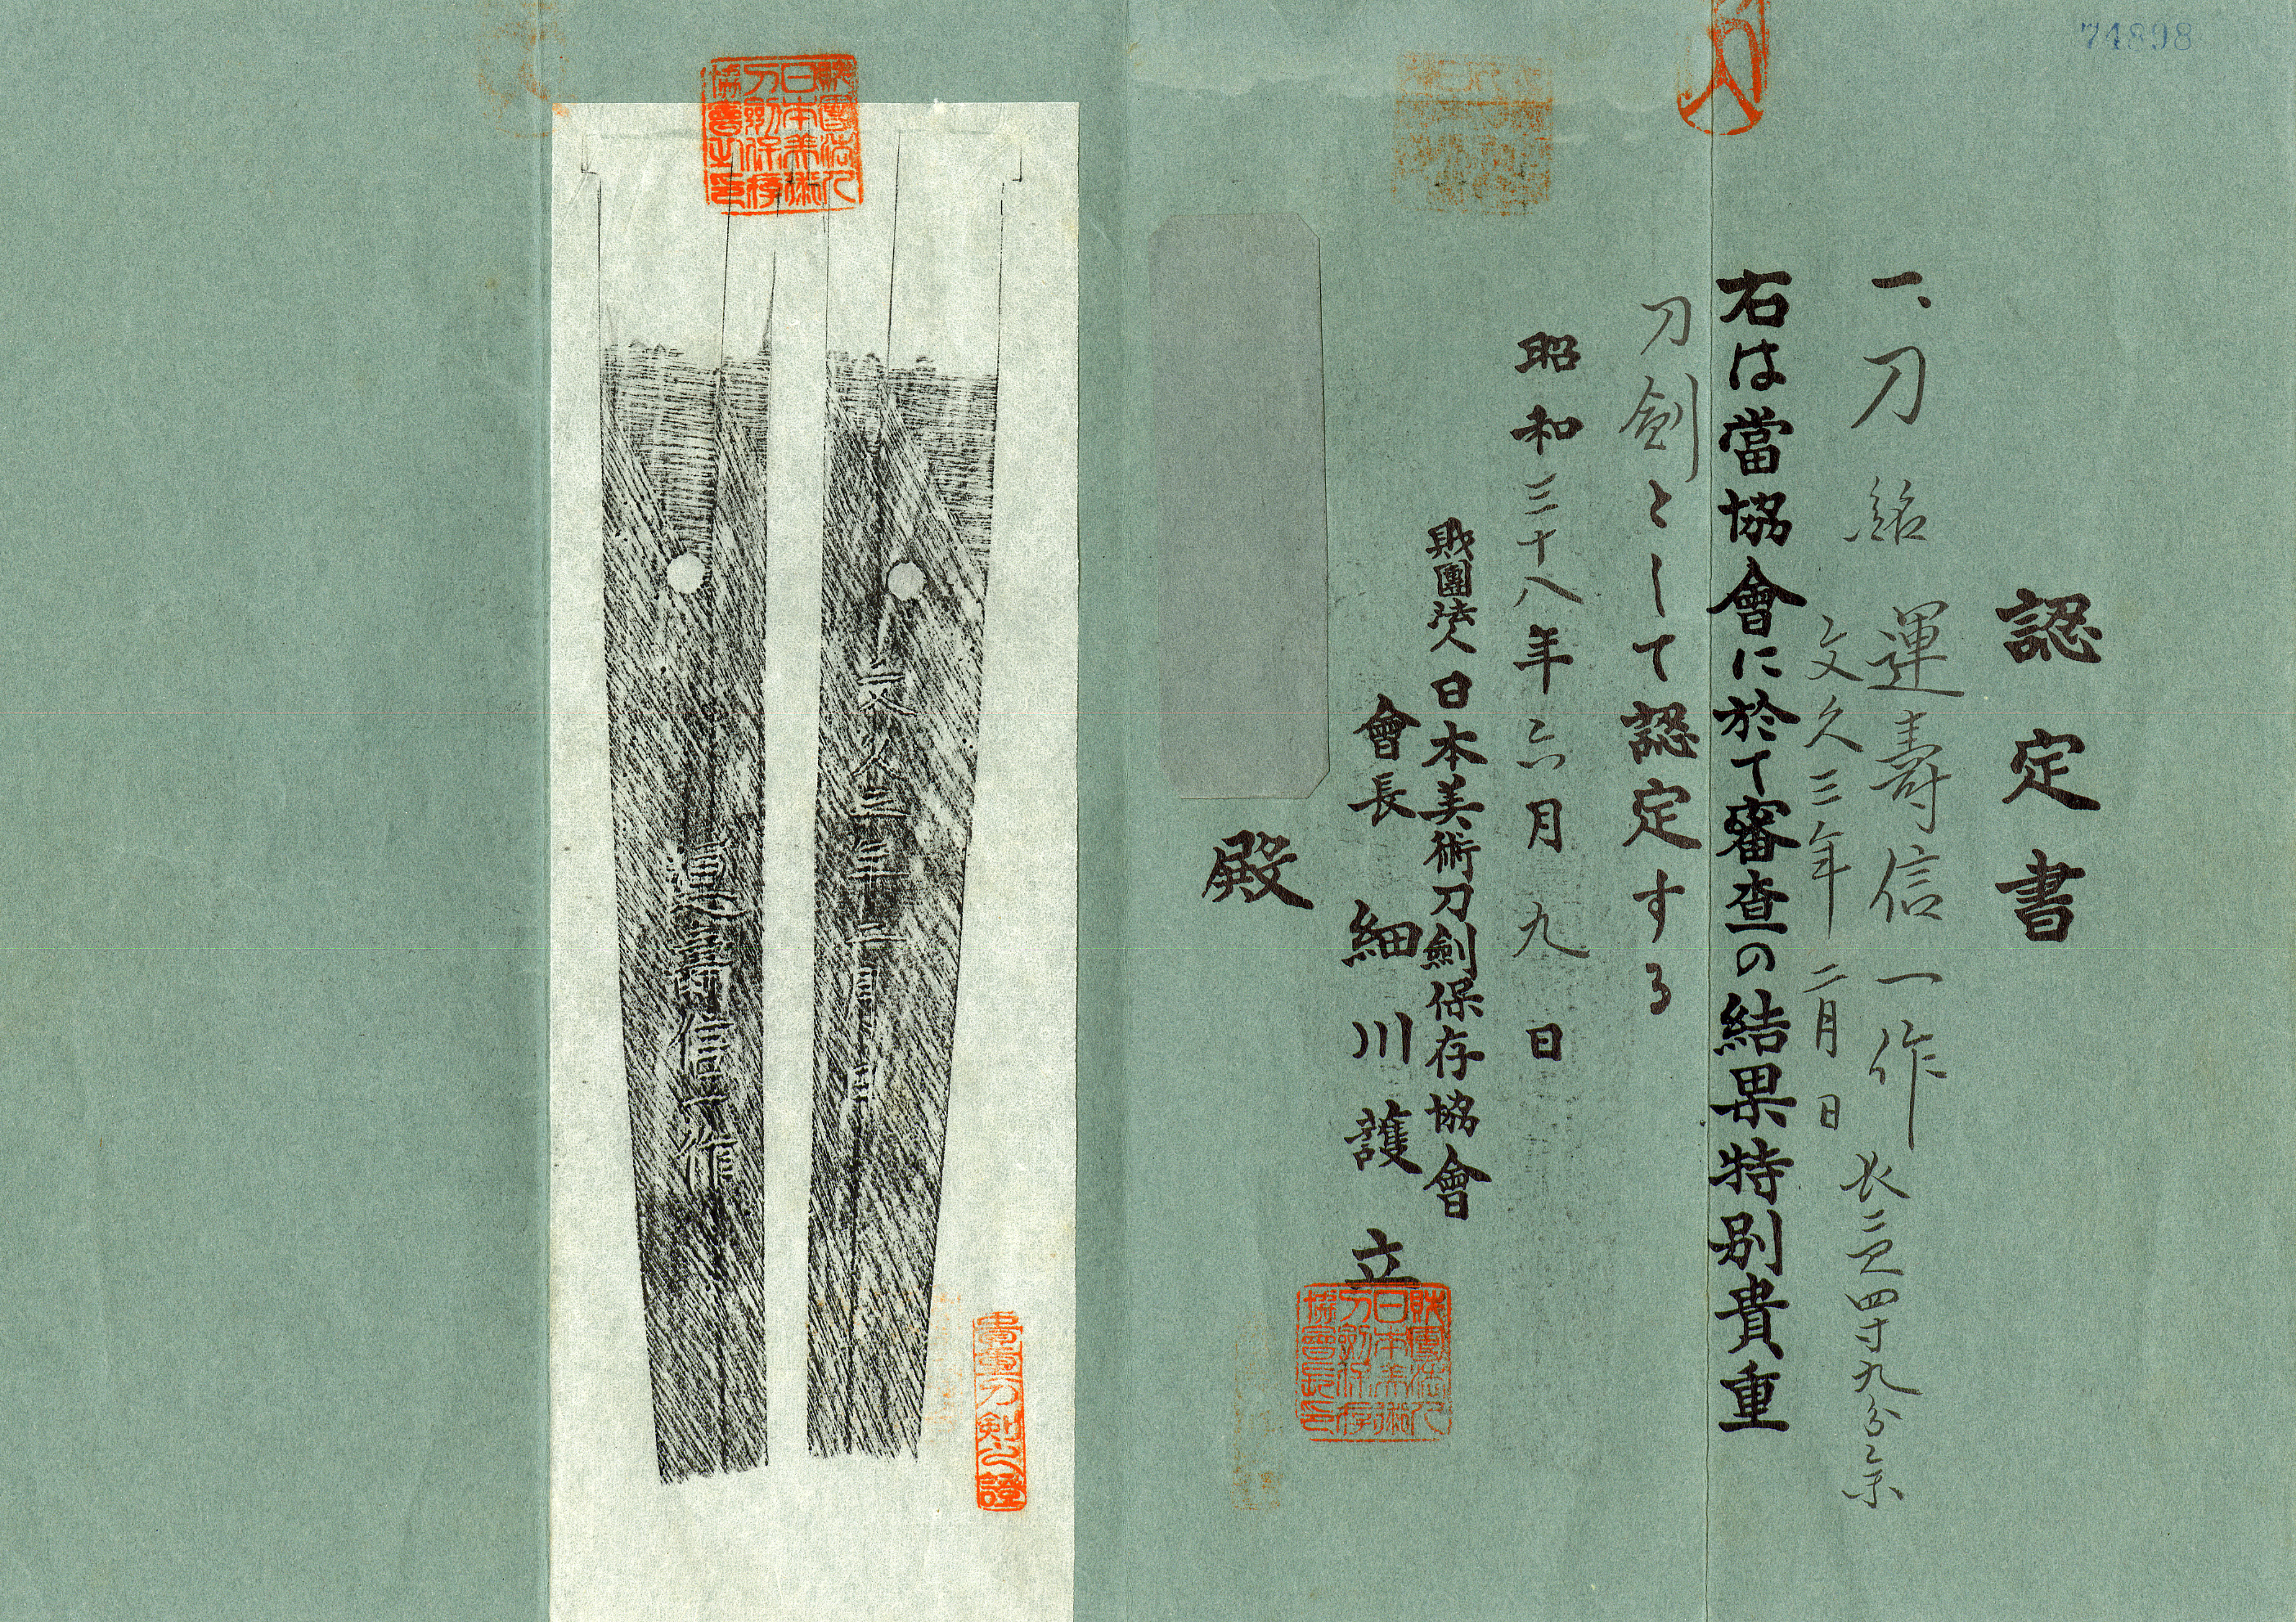 74898
認定書
一、刀 銘 運壽信一作
文久三年二月日
長二尺四寸九分
右は當協會に於て審査の結果特別貴重
刀劍として認定する
昭和三十八年六月九日
財團法人日本美術刀劍保存協會
會長 細川護立
財團法人日本美術刀劍保存協會長印
殿
財團法人日本美術刀劍保存協會之印
文久三年二月日
運壽信一作
貴重刀剣之證